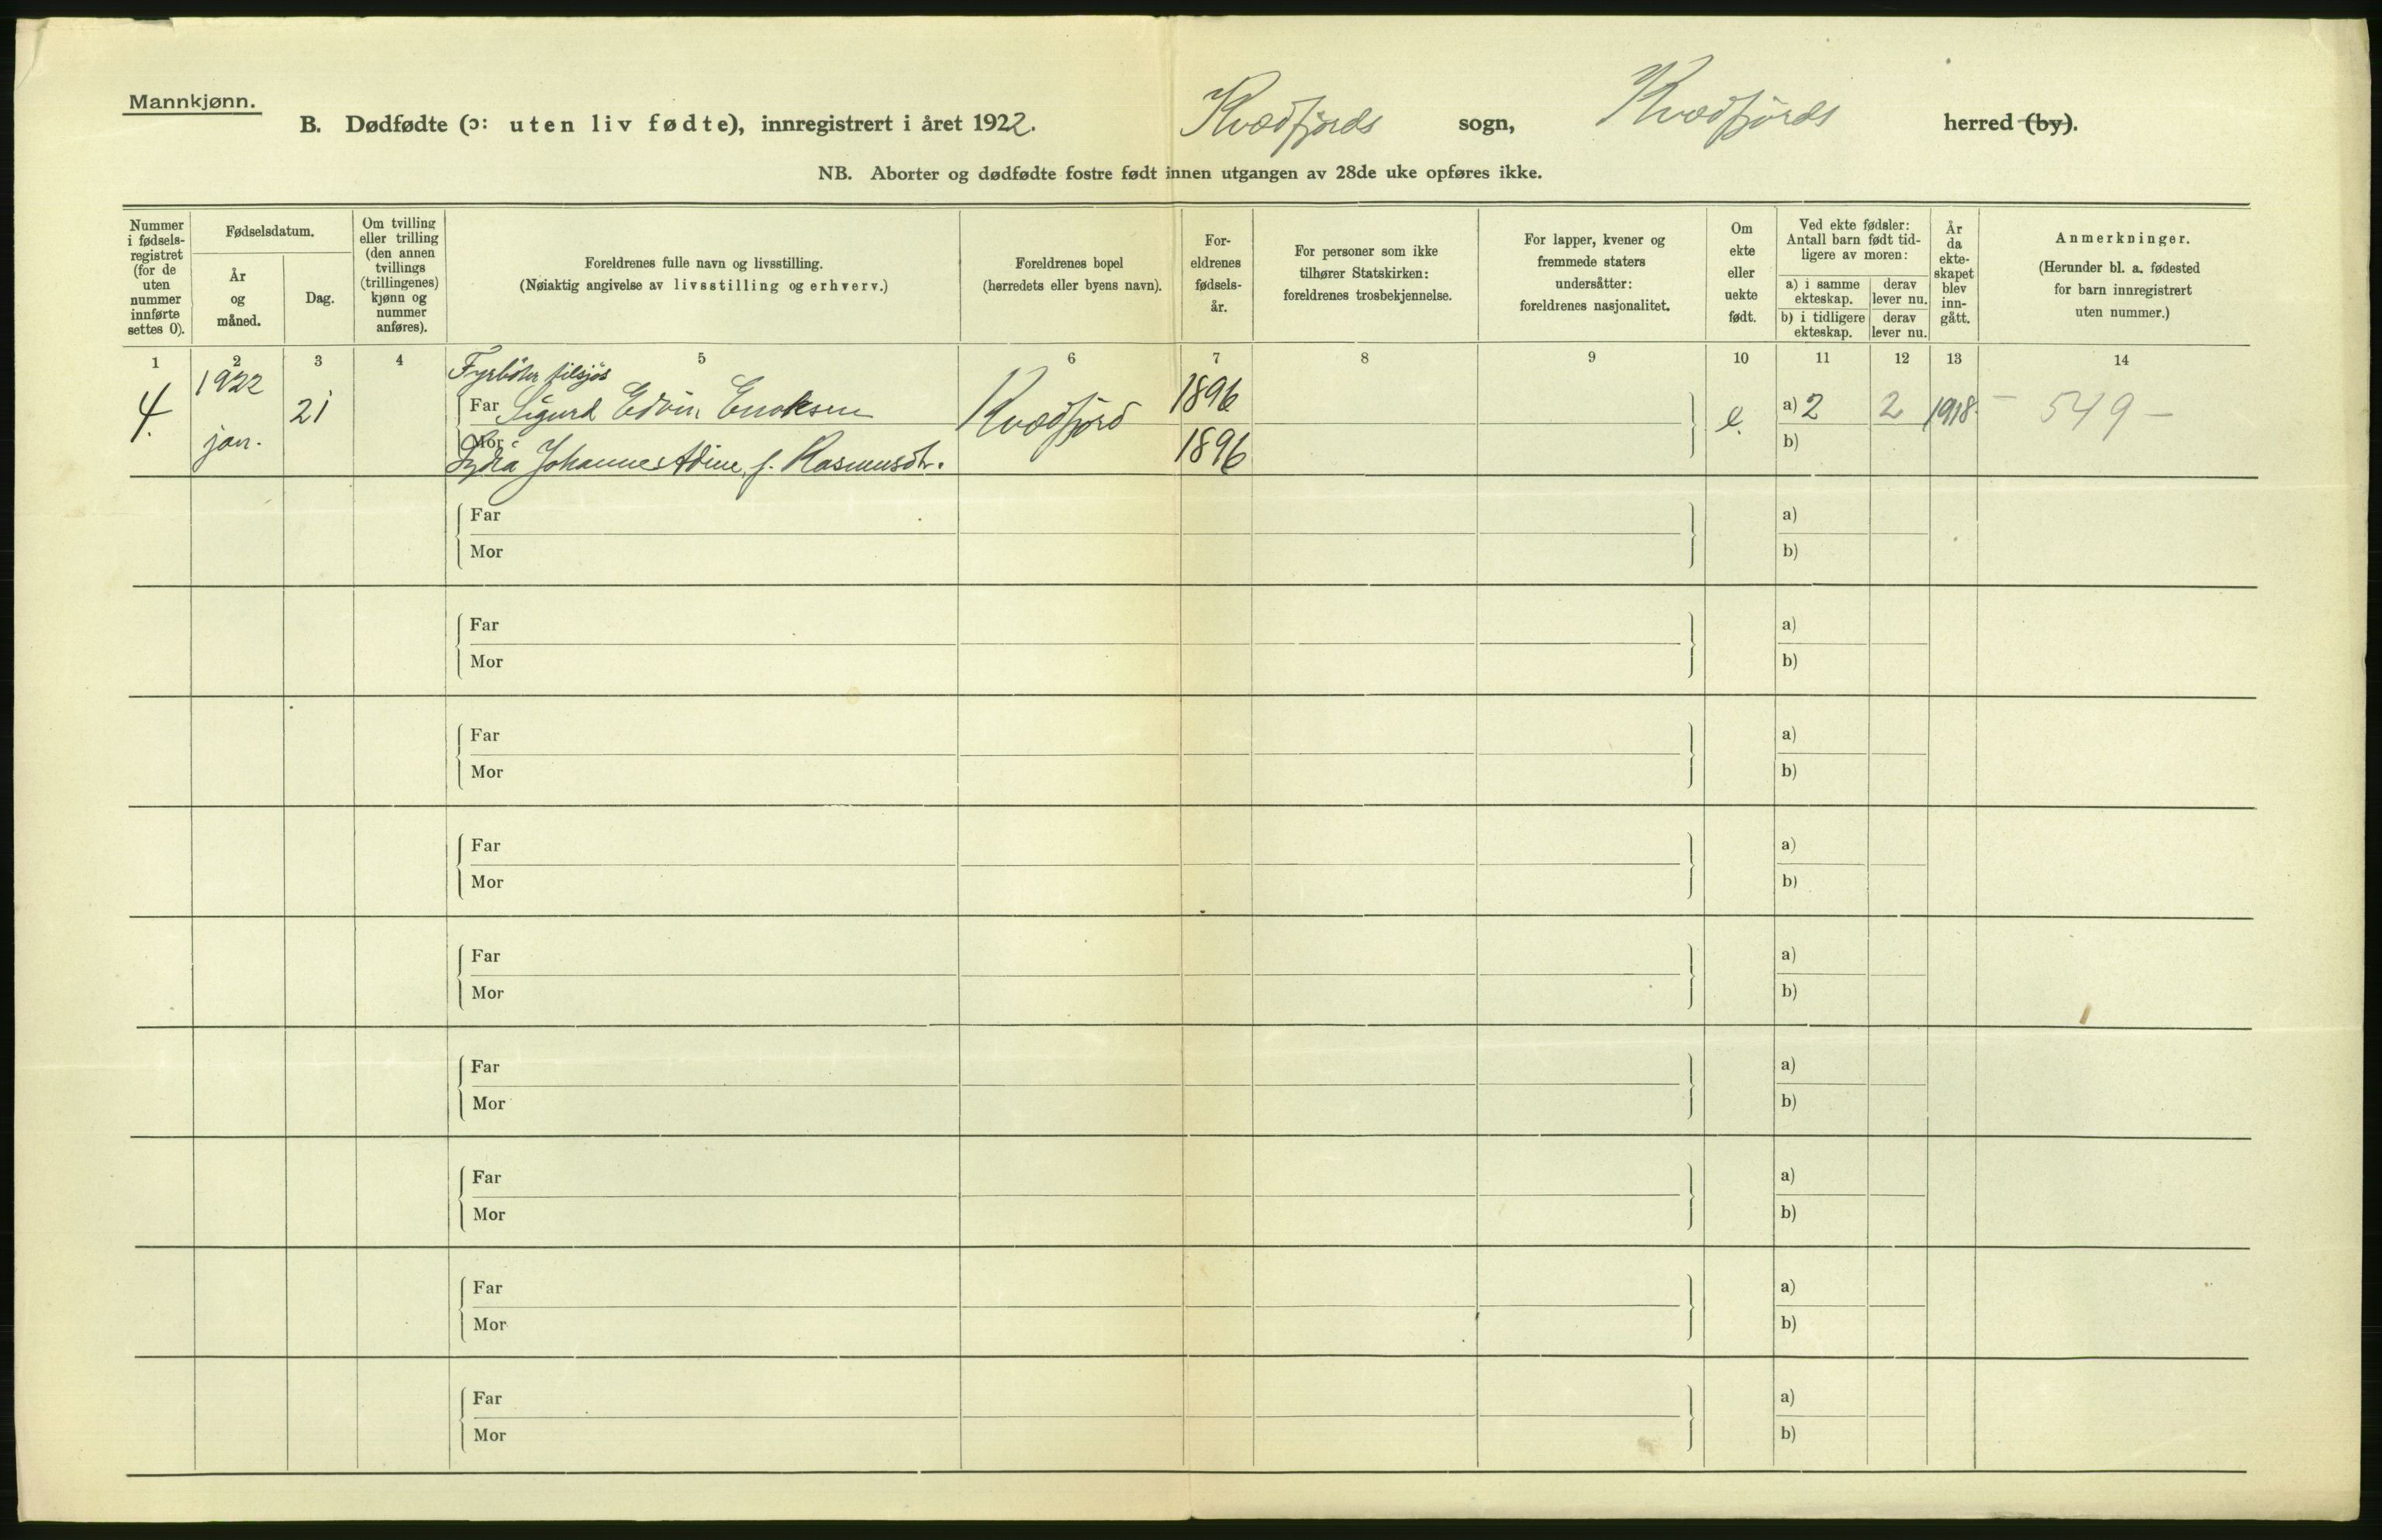 Mannkjønn.
B. Dødfødte (ɔ: uten liv fødte), innregistrert i året 1922. Kvædfjords sogn, Kvædfjords herred (by).
NB. Aborter og dødfødte fostre født innen utgangen av 28de uke opføres ikke.
Nummer i fødsels-registret (for de uten nummer innførte settes 0).
Fødselsdatum.
År og måned.
Dag.
Om tvilling eller trilling (den annen tvillings (trillingenes) kjønn og nummer anføres).
Foreldrenes fulle navn og livsstilling.
(Nøiaktig angivelse av livsstilling og erhverv.)
Foreldrenes bopel
(herredets eller byens navn).
For-eldrenes fødsels-år.
For personer som ikke tilhører Statskirken: foreldrenes trosbekjennelse.
For lapper, kvener og fremmede staters undersåtter: foreldrenes nasjonalitet.
Om ekte eller uekte født.
Ved ekte fødsler: Antall barn født tid-ligere av moren:
a) i samme ekteskap.
derav lever nu.
b) i tidligere ekteskap.
derav lever nu.
År da ekte-skapet blev inn-gått.
Anmerkninger.
(Herunder bl. a. fødested for barn innregistrert uten nummer.)
1 2 3 4 5 6 7 8 9 10 11 12 13 14
Fyrbøter tilsjøs
4. 1922 jan. 21 Far Sigurd Edvin Enoksen Kvædfjord 1896 e. a) 2 2 1918 - 549 -
Mor Lydia Johanne Adine f. Rasmusdtr. 1896 b)
Far a)
Mor b)
Far a)
Mor b)
Far a)
Mor b)
Far a)
Mor b)
Far a)
Mor b)
Far a)
Mor b)
Far a)
Mor b)
Far a)
Mor b)
Far a)
Mor b)